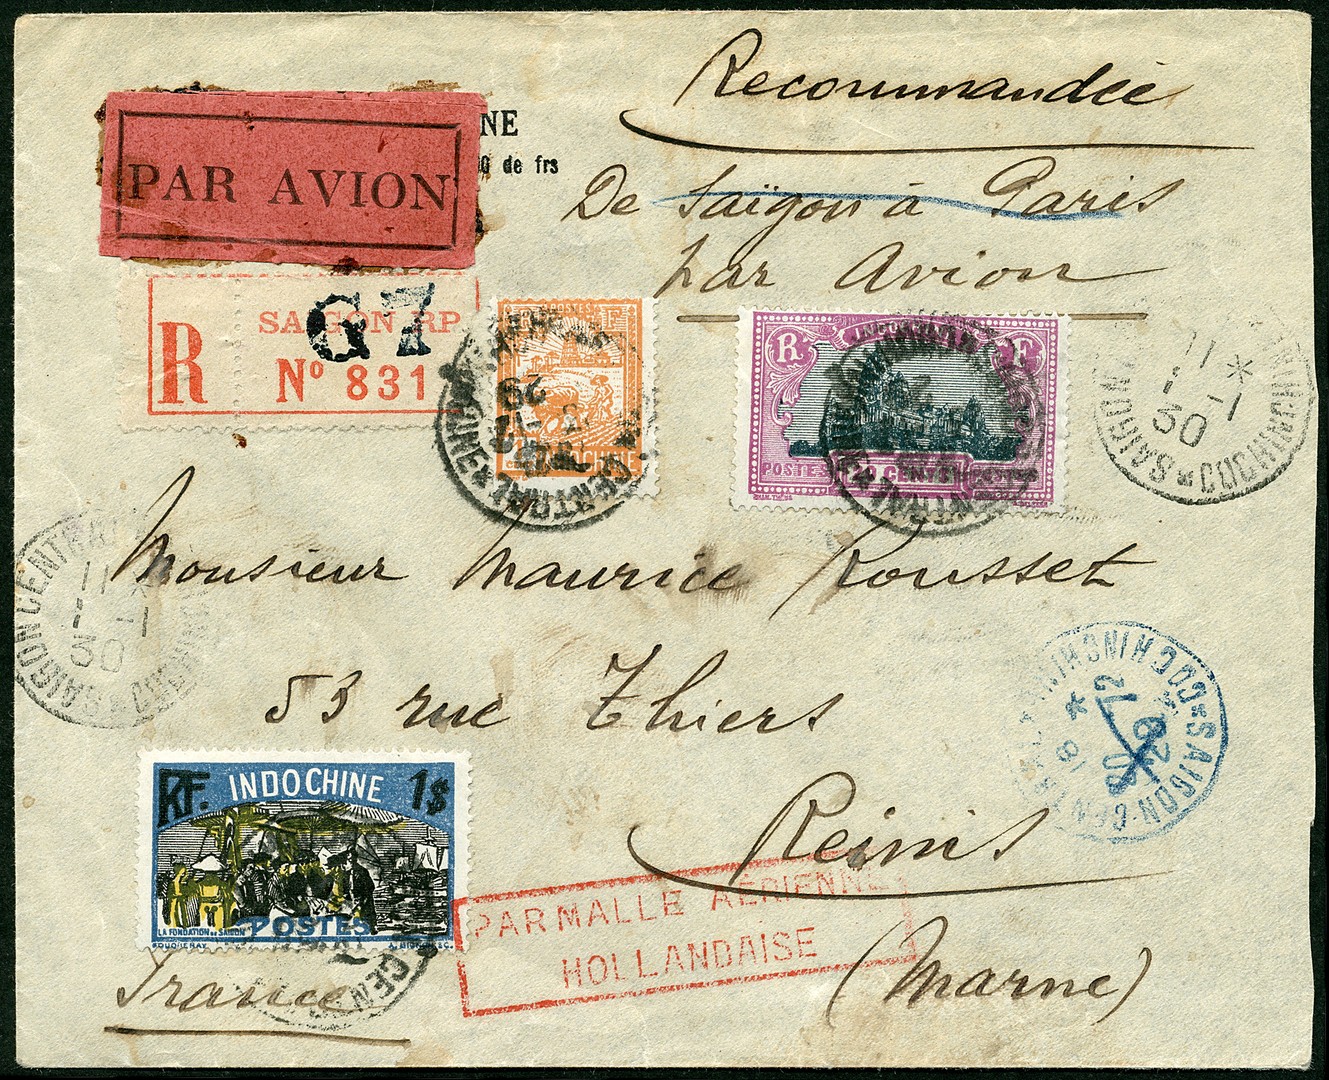 Recommandée
NE
0 de frs
PAR AVION
De Saïgon à Paris
par Avion
R
SAIGON RP
G7
Nº 831
POSTES
F
INDOCHINE
R F
POSTES
CENTS
SAIGON CENTRAL
29
11 *
1 -1
30
SAIGON * COCHINCHINE
SAIGON CENTRAL
11 *
1 -1
30
Monsieur Maurice Rousset
53 rue Thiers
Reims
(Marne)
France
SAIGON-CENTRAL * COCHINCHINE
* 18
12
29
RF.
INDOCHINE
1$
LA FONDATION DE SAIGON
POSTES
PAR MALLE AÉRIENNE
HOLLANDAISE
CEN